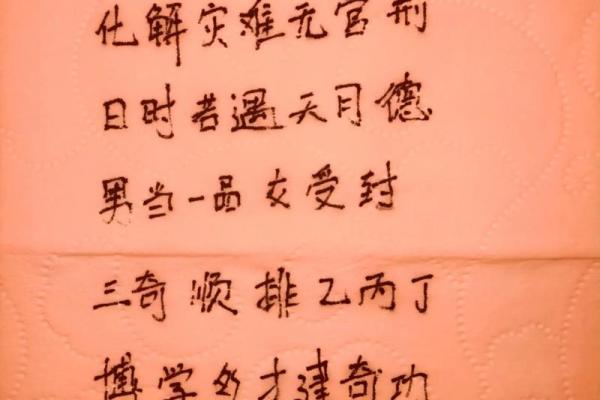 化解灾难无官刑
日时若遇天月德
男当一品女受封
三奇顺排乙丙丁
博学多才建奇功